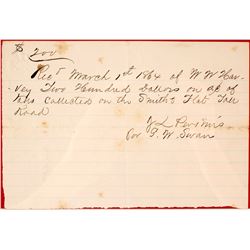 $ 200
Rec^d March 1st 1864 of W W Har-
vey Two Hundred Dollars on a/c of
tolls collected on the Smith's Flat Toll
Road
Y L Perkins
for T. W. Swan